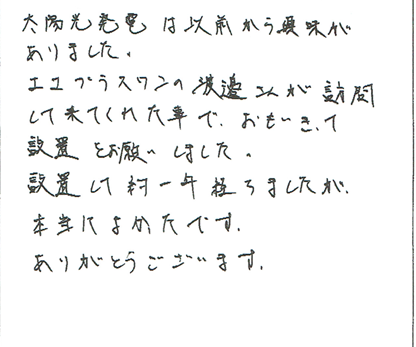 太陽光発電は以前から興味が
ありました。
エコプラスワンの渡邉さんが訪問
して来てくれた事で、おもいきって
設置をお願いしました。
設置して約一年経ちましたが、
本当によかたです。
ありがとうございます。